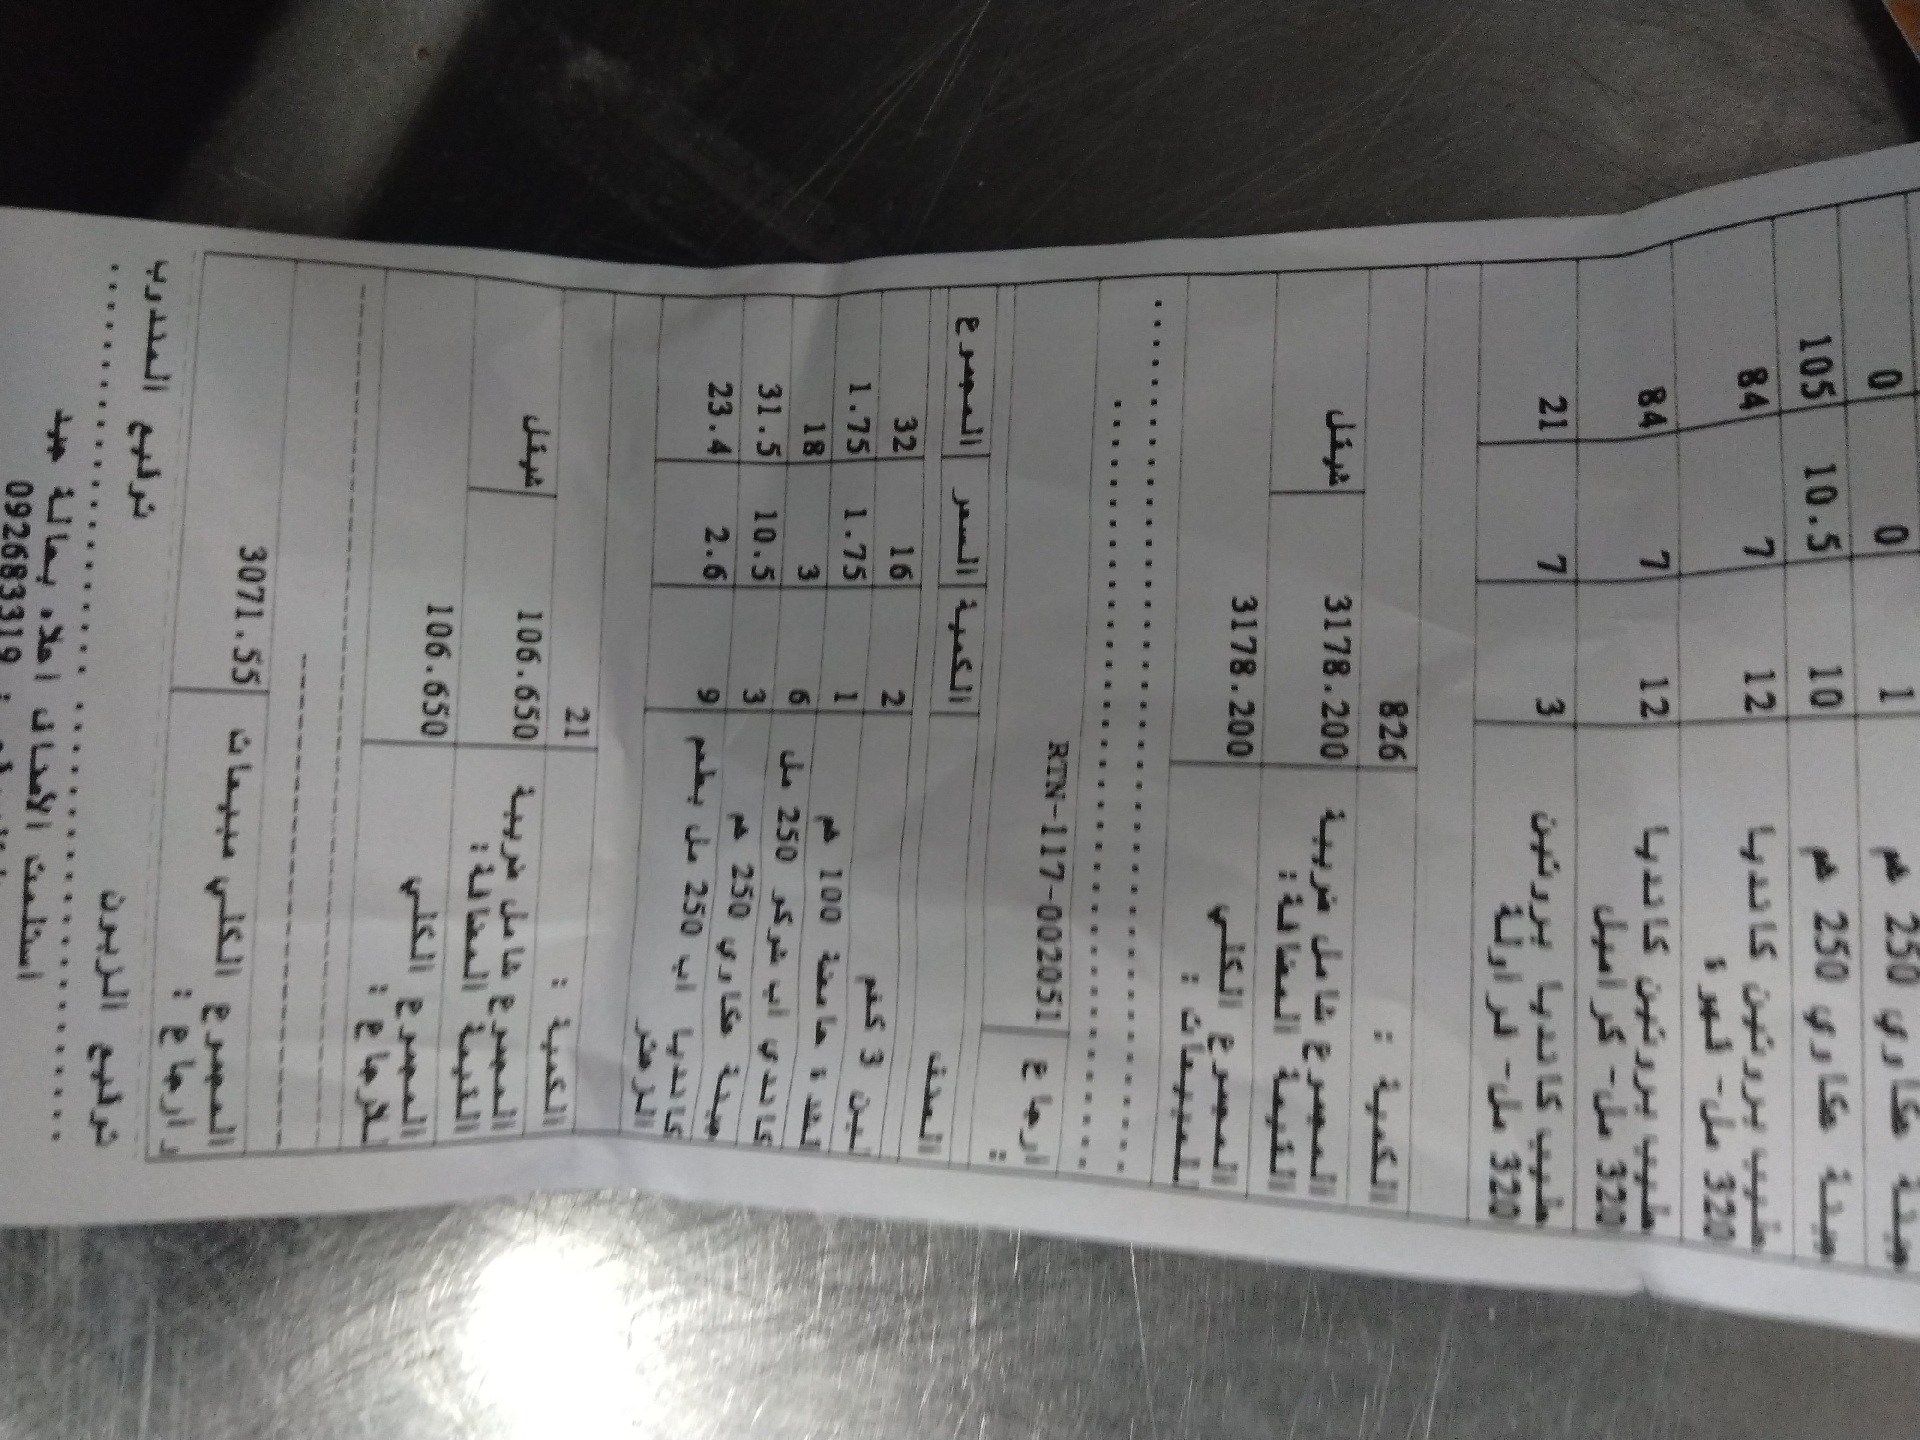 جبنة عكاوي 250 غم 1 0 0
جبنة عكاوي 250 غم 10 10.5 105
حليب بروتين كانديا 320 مل- قهوة 12 7 84
حليب بروتين كانديا 320 مل- كراميل 12 7 84
حليب كانديا بروتين 320 مل- فراولة 3 7 21
الكمية : 826
المجموع شامل ضريبة القيمة المضافة: 3178.200 شيقل
المجموع الكلي للمبيعات : 3178.200
ارجاع : RTN-117-002051
الصنف الكمية السعر المجموع
لبن 3 كغم 2 16 32
لبنة حامضة 100 غم 1 1.75 1.75
كاندي اب شوكو 250 مل 6 3 18
جبنة عكاوي 250 غم 3 10.5 31.5
كانديا اب 250 مل بطعم الموز 9 2.6 23.4
الكمية : 21
المجموع شامل ضريبة القيمة المضافة: 106.650 شيقل
المجموع الكلي للارجاع : 106.650
المجموع الكلي مبيعات و ارجاع : 3071.55
توقيع الزبون توقيع المندوب
استلمت الأصناف اعلاه بحالة جيدة
092683319